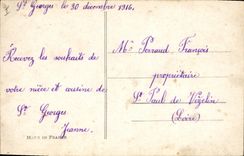 St Georges le 30 décembre 1916.
Recevez les souhaits de
votre nièce et cousine de
St Georges
Jeanne.
MADE IN FRANCE
Mr Perraud François
propriétaire
St Paul de Vézelin
(Loire)